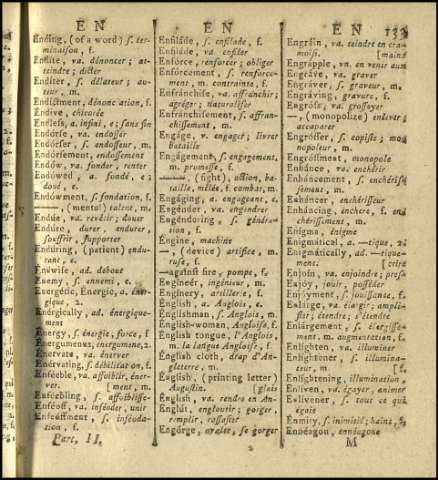 E N
E N
E N
133
Ending, (of a word) s. ter-
minaison, f.
Endite, va. dénoncer; at-
teindre; dicter
Enditer, s. délateur; au-
teur, m.
Endictment, dénonciation, f.
Endive, chicorée
Endless, a. infini, e; sans fin
Endorse, va. endosser
Endorser, s. endosseur, m.
Endorsement, endossement
Endow, va. fonder, renter
Endowed, a. fondé, e;
doué, e.
Endowment, s. fondation, f.
——, (mental) talent, m.
Endue, va. revêtir; douer
Endure, durer, endurer,
souffrir, supporter
Enduring, (patient) endu-
rant, e.
Endwise, ad. debout
Enemy, s. ennemi, e.
Energetic, Energic, a. éner-
gique, 2.
Energically, ad. énergique-
ment
Energy, s. énergie, force, f
Energumenus, énergumene, 2.
Enervate, va. énerver
Enervating, s. débilitation, f.
Enfeeble, va. affoiblir, éner-
ver. [ment, m.
Enfeebling, s. affoiblisse-
Enfeoff, va. inféoder, unir
Enfeoffment, s. inféoda-
tion, f.
Part. II.
Enfilade, s. enfilade, f.
Enfilade, va. enfiler
Enforce, renforcer; obliger
Enforcement, s. renforce-
ment, m. contrainte, f.
Enfranchise, va. affranchir;
agréger; naturaliser
Enfranchisement, s. affran-
chissement, m.
Engage, v. engager; livrer
bataille
Engagement, s. engagement,
m. promesse, f.
——, (fight), action, ba-
taille, mêlée, f. combat, m.
Engaging, a. engageant, e.
Engender, va. engendrer
Engendering, s. généra-
tion, f.
Engine, machine
—, (device) artifice, m.
ruse, f.
—against fire, pompe, f.
Engineer, ingénieur, m.
Enginery, artillerie, f.
English, a. Anglois, e.
Englishman, s. Anglois, m.
English-woman, Angloise, f.
English tongue, l'Anglois,
m. la langue Angloise, f.
English cloth, drap d'An-
gleterre, m.
English, (printing letter)
Augustin. [glois
English, va. rendre en An-
Englut, engloutir; gorger,
remplir, rassasier
Engorge, avaler, se gorger
Engrain, va. teindre en cra-
moisi. [main
Engrapple, vn. en venir aux
Engrave, va. graver
Engraver, s. graveur, m.
Engraving, gravure, f.
Engross, va. grossoyer
—, (monopolize) enlever;
accaparer
Engrosser, s. copiste; mo-
nopoleur, m.
Engrossment, monopole
Enhance, va. enchérir
Enhancement, s. enchéris-
sement, m.
Enhancer, enchérisseur
Enhancing, enchere, f. en-
chérissement, m.
Enigma, énigme
Enigmatical, a. —tique, 2.
Enigmatically, ad. —tique-
ment. [crire
Enjoin, va. enjoindre; pres-
Enjoy, jouir, posséder
Enjoyment, s. jouissance, f.
Enlarge, va. élargir; ampli-
fier; étendre; s'étendre
Enlargement, s. élargisse-
ment, m. augmentation, f.
Enlighten, va. illuminer
Enlightener, s. illumina-
teur, m.
Enlightening, illumination,
Enliven, va. égayer, animer
Enlivener, s. tout ce qui
égaie
Enmity, s. inimitié; haine, f.
Enneagon, ennéagone
M